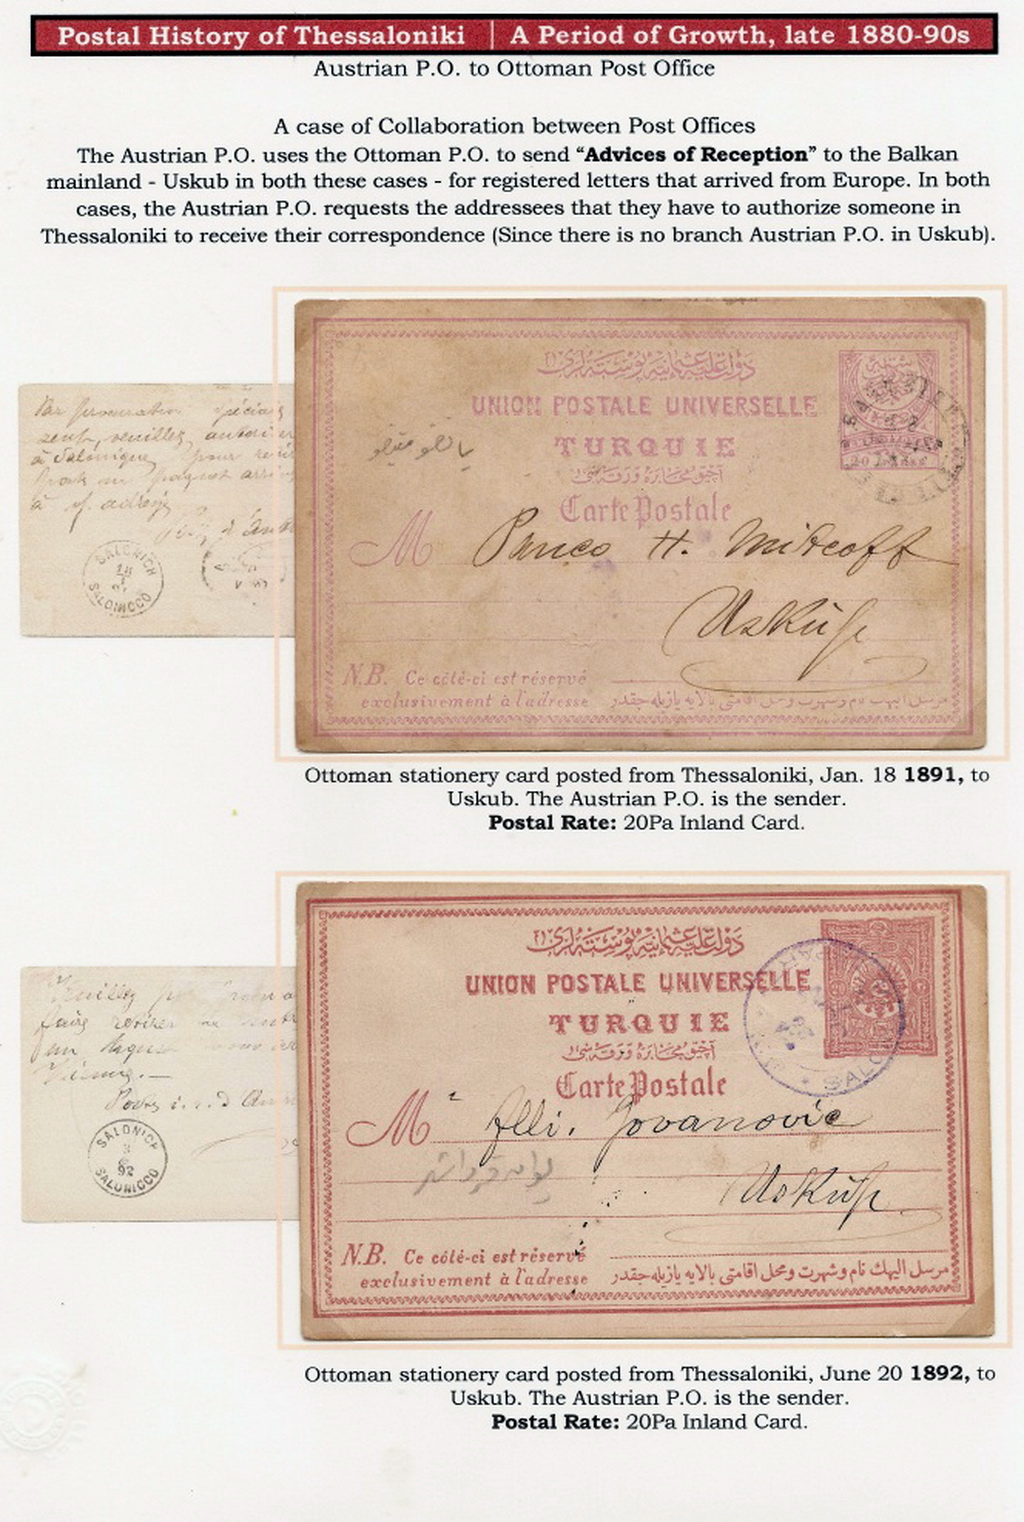 Postal History of Thessaloniki | A Period of Growth, late 1880-90s
Austrian P.O. to Ottoman Post Office
A case of Collaboration between Post Offices
The Austrian P.O. uses the Ottoman P.O. to send “Advices of Reception” to the Balkan
mainland - Uskub in both these cases - for registered letters that arrived from Europe. In both
cases, the Austrian P.O. requests the addressees that they have to authorize someone in
Thessaloniki to receive their correspondence (Since there is no branch Austrian P.O. in Uskub).
veuillez
à Salonique pour
à
SALONICH
18
SALONICCO
دولت علیه عثمانیه پوسته لری
UNION POSTALE UNIVERSELLE
TURQUIE
آچیق مخابره ورقه سی
Carte Postale
M Panco H. Mitcoff
Usküp
N.B. Ce côté-ci est réservé
exclusivement à l'adresse
20
Ottoman stationery card posted from Thessaloniki, Jan. 18 1891, to
Uskub. The Austrian P.O. is the sender.
Postal Rate: 20Pa Inland Card.
Veuillez
faire retirer
un
SALONICH
92
SALONICCO
دولت علیه عثمانیه پوسته لری
UNION POSTALE UNIVERSELLE
TURQUIE
آچیق مخابره ورقه سی
Carte Postale
M Jovanovic
Usküp
N.B. Ce côté-ci est réservé
exclusivement à l'adresse
مرسل الیهك نام وشهرت ومحل اقامتی بالایه یازیله جقدر
SALON
Ottoman stationery card posted from Thessaloniki, June 20 1892, to
Uskub. The Austrian P.O. is the sender.
Postal Rate: 20Pa Inland Card.